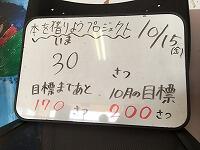 本を借りようプロジェクト 10/15(金)
いま
30 さつ
目標まであと 10月の目標
170さつ 200さつ